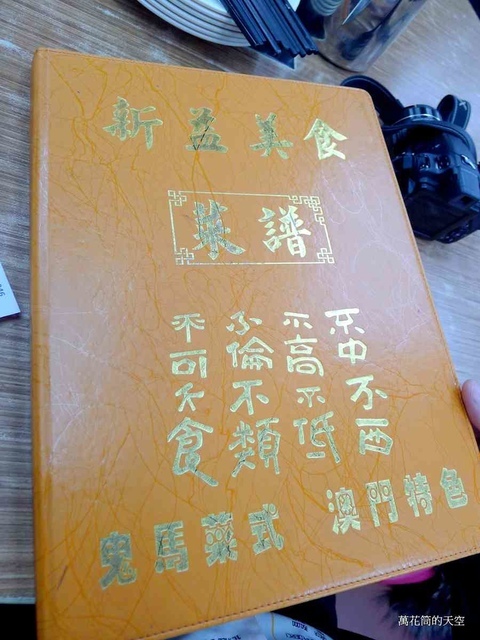 新益美食
菜譜
不中不西
不高不低
不倫不類
不可不食
鬼馬菜式 澳門特色
萬花筒的天空